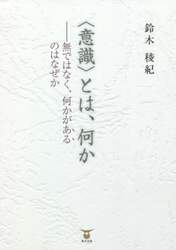 鈴木 稜紀
〈意識〉とは、何か
──無ではなく、何かがある
のはなぜか